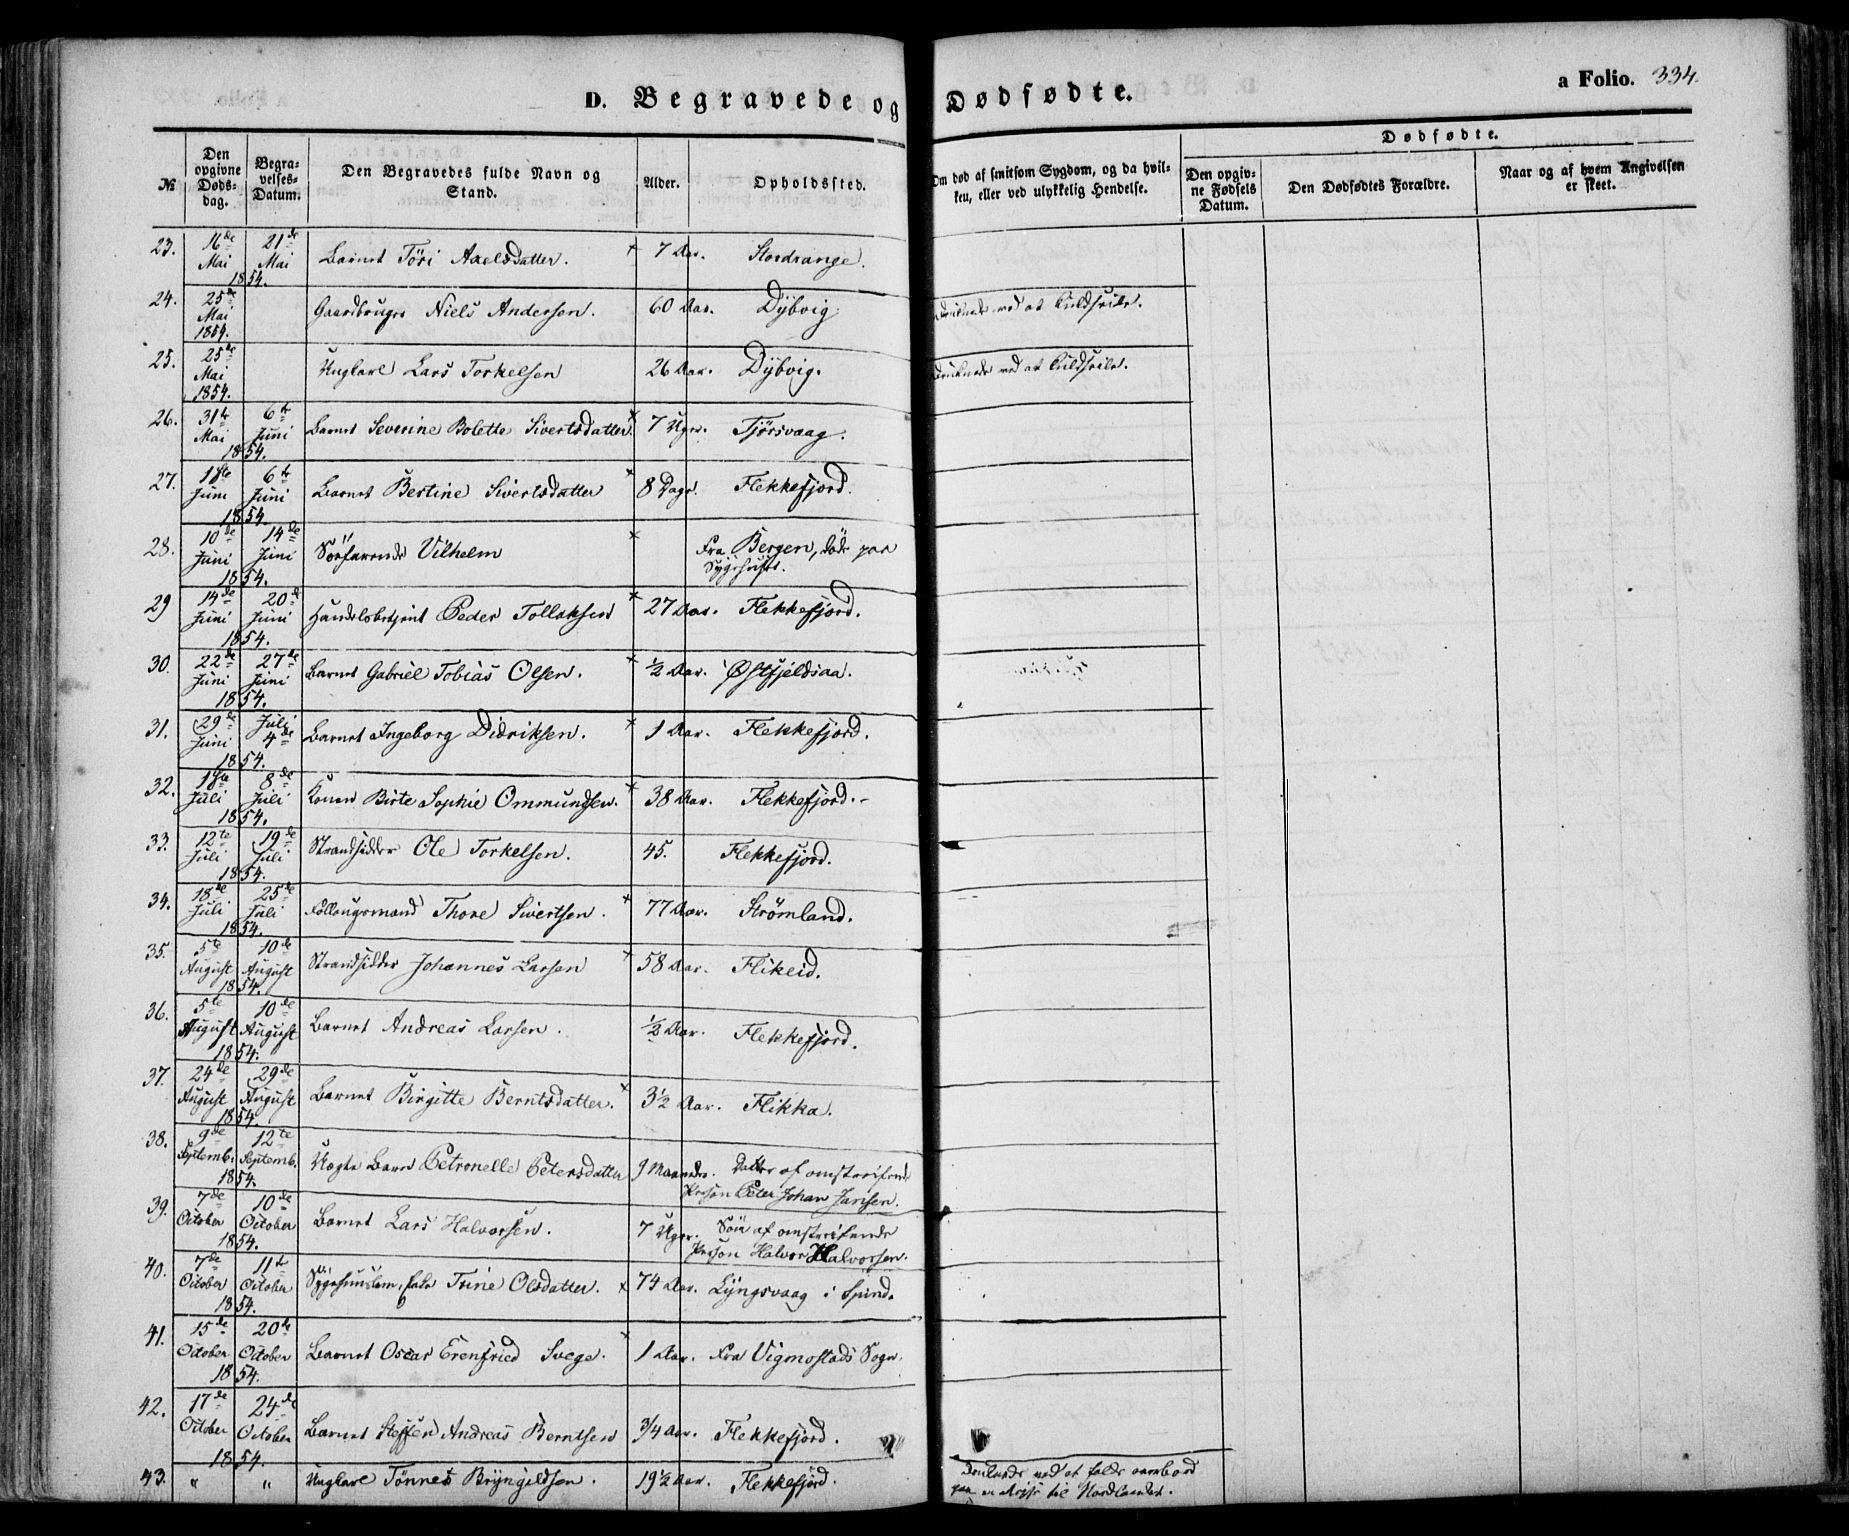 D. Begravede og Dødfødte.
a Folio. 334.
№
Den opgivne Døds-dag.
Begra-velses-Datum.
Den Begravedes fulde Navn og Stand.
Alder.
Opholdssted.
Om død af smitsom Sygdom, og da hvil-ken, eller ved ulykkelig Hendelse.
Dødfødte.
Den opgiv-ne Fødsels Datum.
Den Dødfødtes Forældre.
Naar og af hvem Angivelsen er skeet.
23. 16de Mai 21de Mai 1854. Barnet Töri Axelsdatter. + 7 Aar. Stordrange.
24. 25de Mai 1854. Gaardbruger Niels Andersen. 60 Aar. Dÿbvig. druknede ved at kuldseile.
25. 25de Mai 1854. Ungkarl Lars Torkelsen 26 Aar. Dÿbvig. druknede ved at kuldseile.
26. 31te Mai 6te Juni 1854. Barnet Severine Bolette Sivertsdatter. + 7 Uger. Tjörsvaag.
27. 1ste Juni 6te Juni 1854. Barnet Bertine Sivertsdatter + 8 Dage. Flekkefjord.
28. 10de Juni 14de Juni 1854. Söefarende Vilhelm + Fra Bergen, döde paa
Sygehuset.
29 14de Juni 20de Juni 1854. Handelsbetjent Peder Tollaksen + 27 Aar. Flekkefjord.
30. 22de Juni 27de Juni 1854. Barnet Gabriel Tobias Olsen. + ½ Aar. Østfjeldsaa.
31. 29de Juni Juli 4de 1854. Barnet Ingeborg Didriksen. + 1 Aar. Flekkefjord.
32. 1ste Juli 8de Juli 1854. Konen Birte Sophie Ommundsen. + 38 Aar. Flekkefjord.
33. 12te Juli 19de Juli 1854. Strandsidder Ole Torkelsen. 45. Flekkefjord.
34. 18de Juli 25de Juli 1854. Föllaugsmand Thore Sivertsen. + 77 Aar. Strømland.
35. 5te August 10de August 1854. Strandsidder Johannes Larsen + 58 Aar. Flikeid.
36. 5te August 10de August 1854. Barnet Andreas Larsen. ½ Aar. Flekkefjord.
37. 24de August 29de August 1854. Barnet Birgitte Berntsdatter. + 3½ Aar. Flikka.
38. 9de Septemb. 12te Septemb. 1854. Uægte Barn Petronelle Petersdatter 9 Maaneder. Datter af omstreifende
Person Peter Johan Jansen.
39. 7de October 10de October 1854. Barnet Lars Halvorsen. 7 Uger. Sön af omstreifende
Person Halvor Halvorsen.
40. 7de October 11te October 1854. Sÿgehuuslem, Trine Olsdatter. + 74 Aar. Lÿngsvaag i Spind.
41. 15de October 20de October 1854. Barnet Oscar Erenfried Svege. + 1 Aar. Fra Vigmostads Sogn.
42. 17de October 24de October 1854. Barnet Steffen Andreas Berntsen ¾ Aar. Flekkefjord.
43. " " Ungkarl Tönnes Brÿngeldsen. 19½ Aar. Flekkefjord. Druknede ved at falde overbord
paa en Reise til Nordlandet.